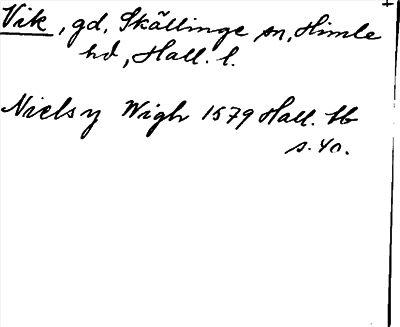 Vik, gd, Skällinge sn, Himle
hd, Hall. l.
Niels y Wigh 1579 Hall. tb
s. 40.